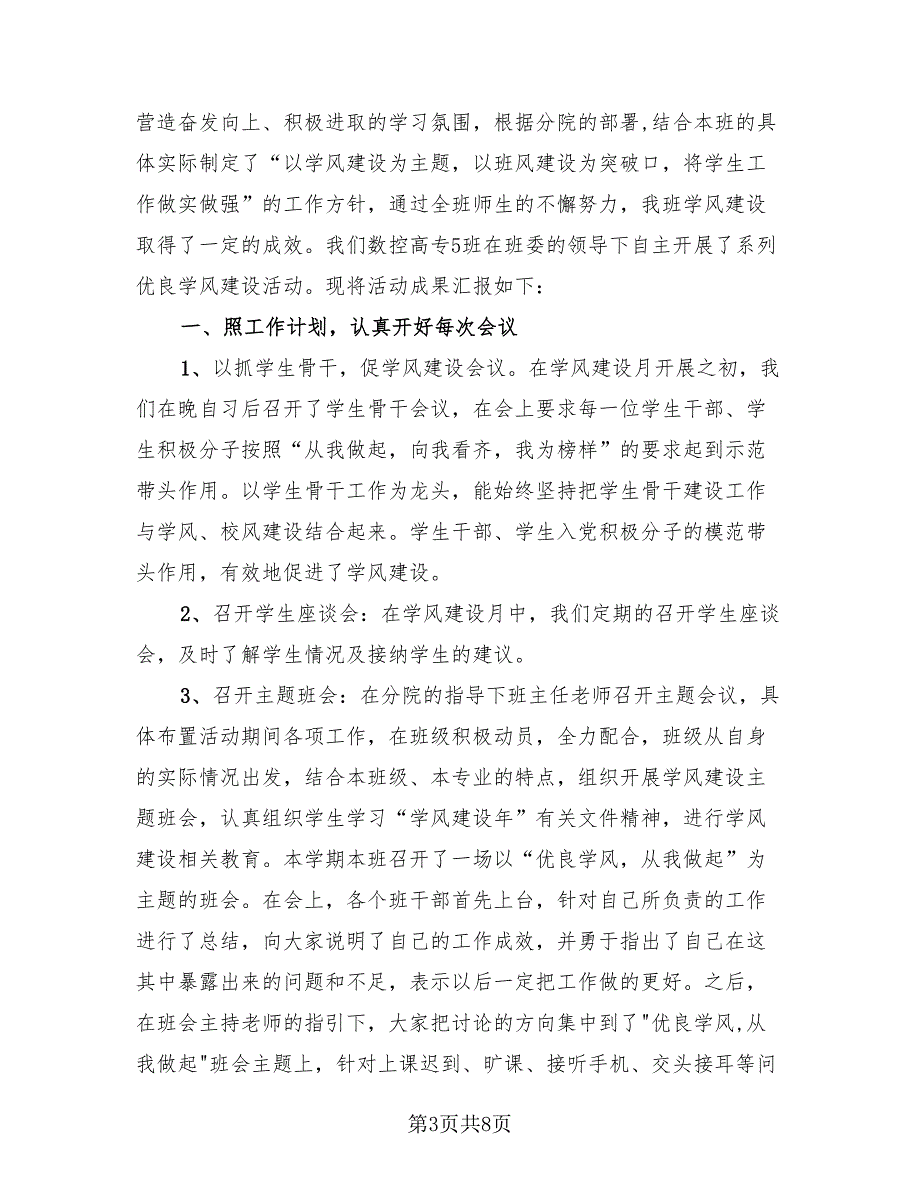 营造奋发向上、积极进取的学习氛围，根据分院的部署,结合本班的具
体实际制定了“以学风建设为主题，以班风建设为突破口，将学生工
作做实做强”的工作方针，通过全班师生的不懈努力，我班学风建设
取得了一定的成效。我们数控高专5班在班委的领导下自主开展了系列
优良学风建设活动。现将活动成果汇报如下：
一、照工作计划，认真开好每次会议
1、以抓学生骨干，促学风建设会议。在学风建设月开展之初，我
们在晚自习后召开了学生骨干会议，在会上要求每一位学生干部、学
生积极分子按照“从我做起，向我看齐，我为榜样”的要求起到示范
带头作用。以学生骨干工作为龙头，能始终坚持把学生骨干建设工作
与学风、校风建设结合起来。学生干部、学生入党积极分子的模范带
头作用，有效地促进了学风建设。
2、召开学生座谈会：在学风建设月中，我们定期的召开学生座谈
会，及时了解学生情况及接纳学生的建议。
3、召开主题班会：在分院的指导下班主任老师召开主题会议，具
体布置活动期间各项工作，在班级积极动员，全力配合，班级从自身
的实际情况出发，结合本班级、本专业的特点，组织开展学风建设主
题班会，认真组织学生学习“学风建设年”有关文件精神，进行学风
建设相关教育。本学期本班召开了一场以“优良学风，从我做起”为
主题的班会。在会上，各个班干部首先上台，针对自己所负责的工作
进行了总结，向大家说明了自己的工作成效，并勇于指出了自己在这
其中暴露出来的问题和不足，表示以后一定把工作做的更好。之后，
在班会主持老师的指引下，大家把讨论的方向集中到了"优良学风,从
我做起"班会主题上，针对上课迟到、旷课、接听手机、交头接耳等问
第3页共8页